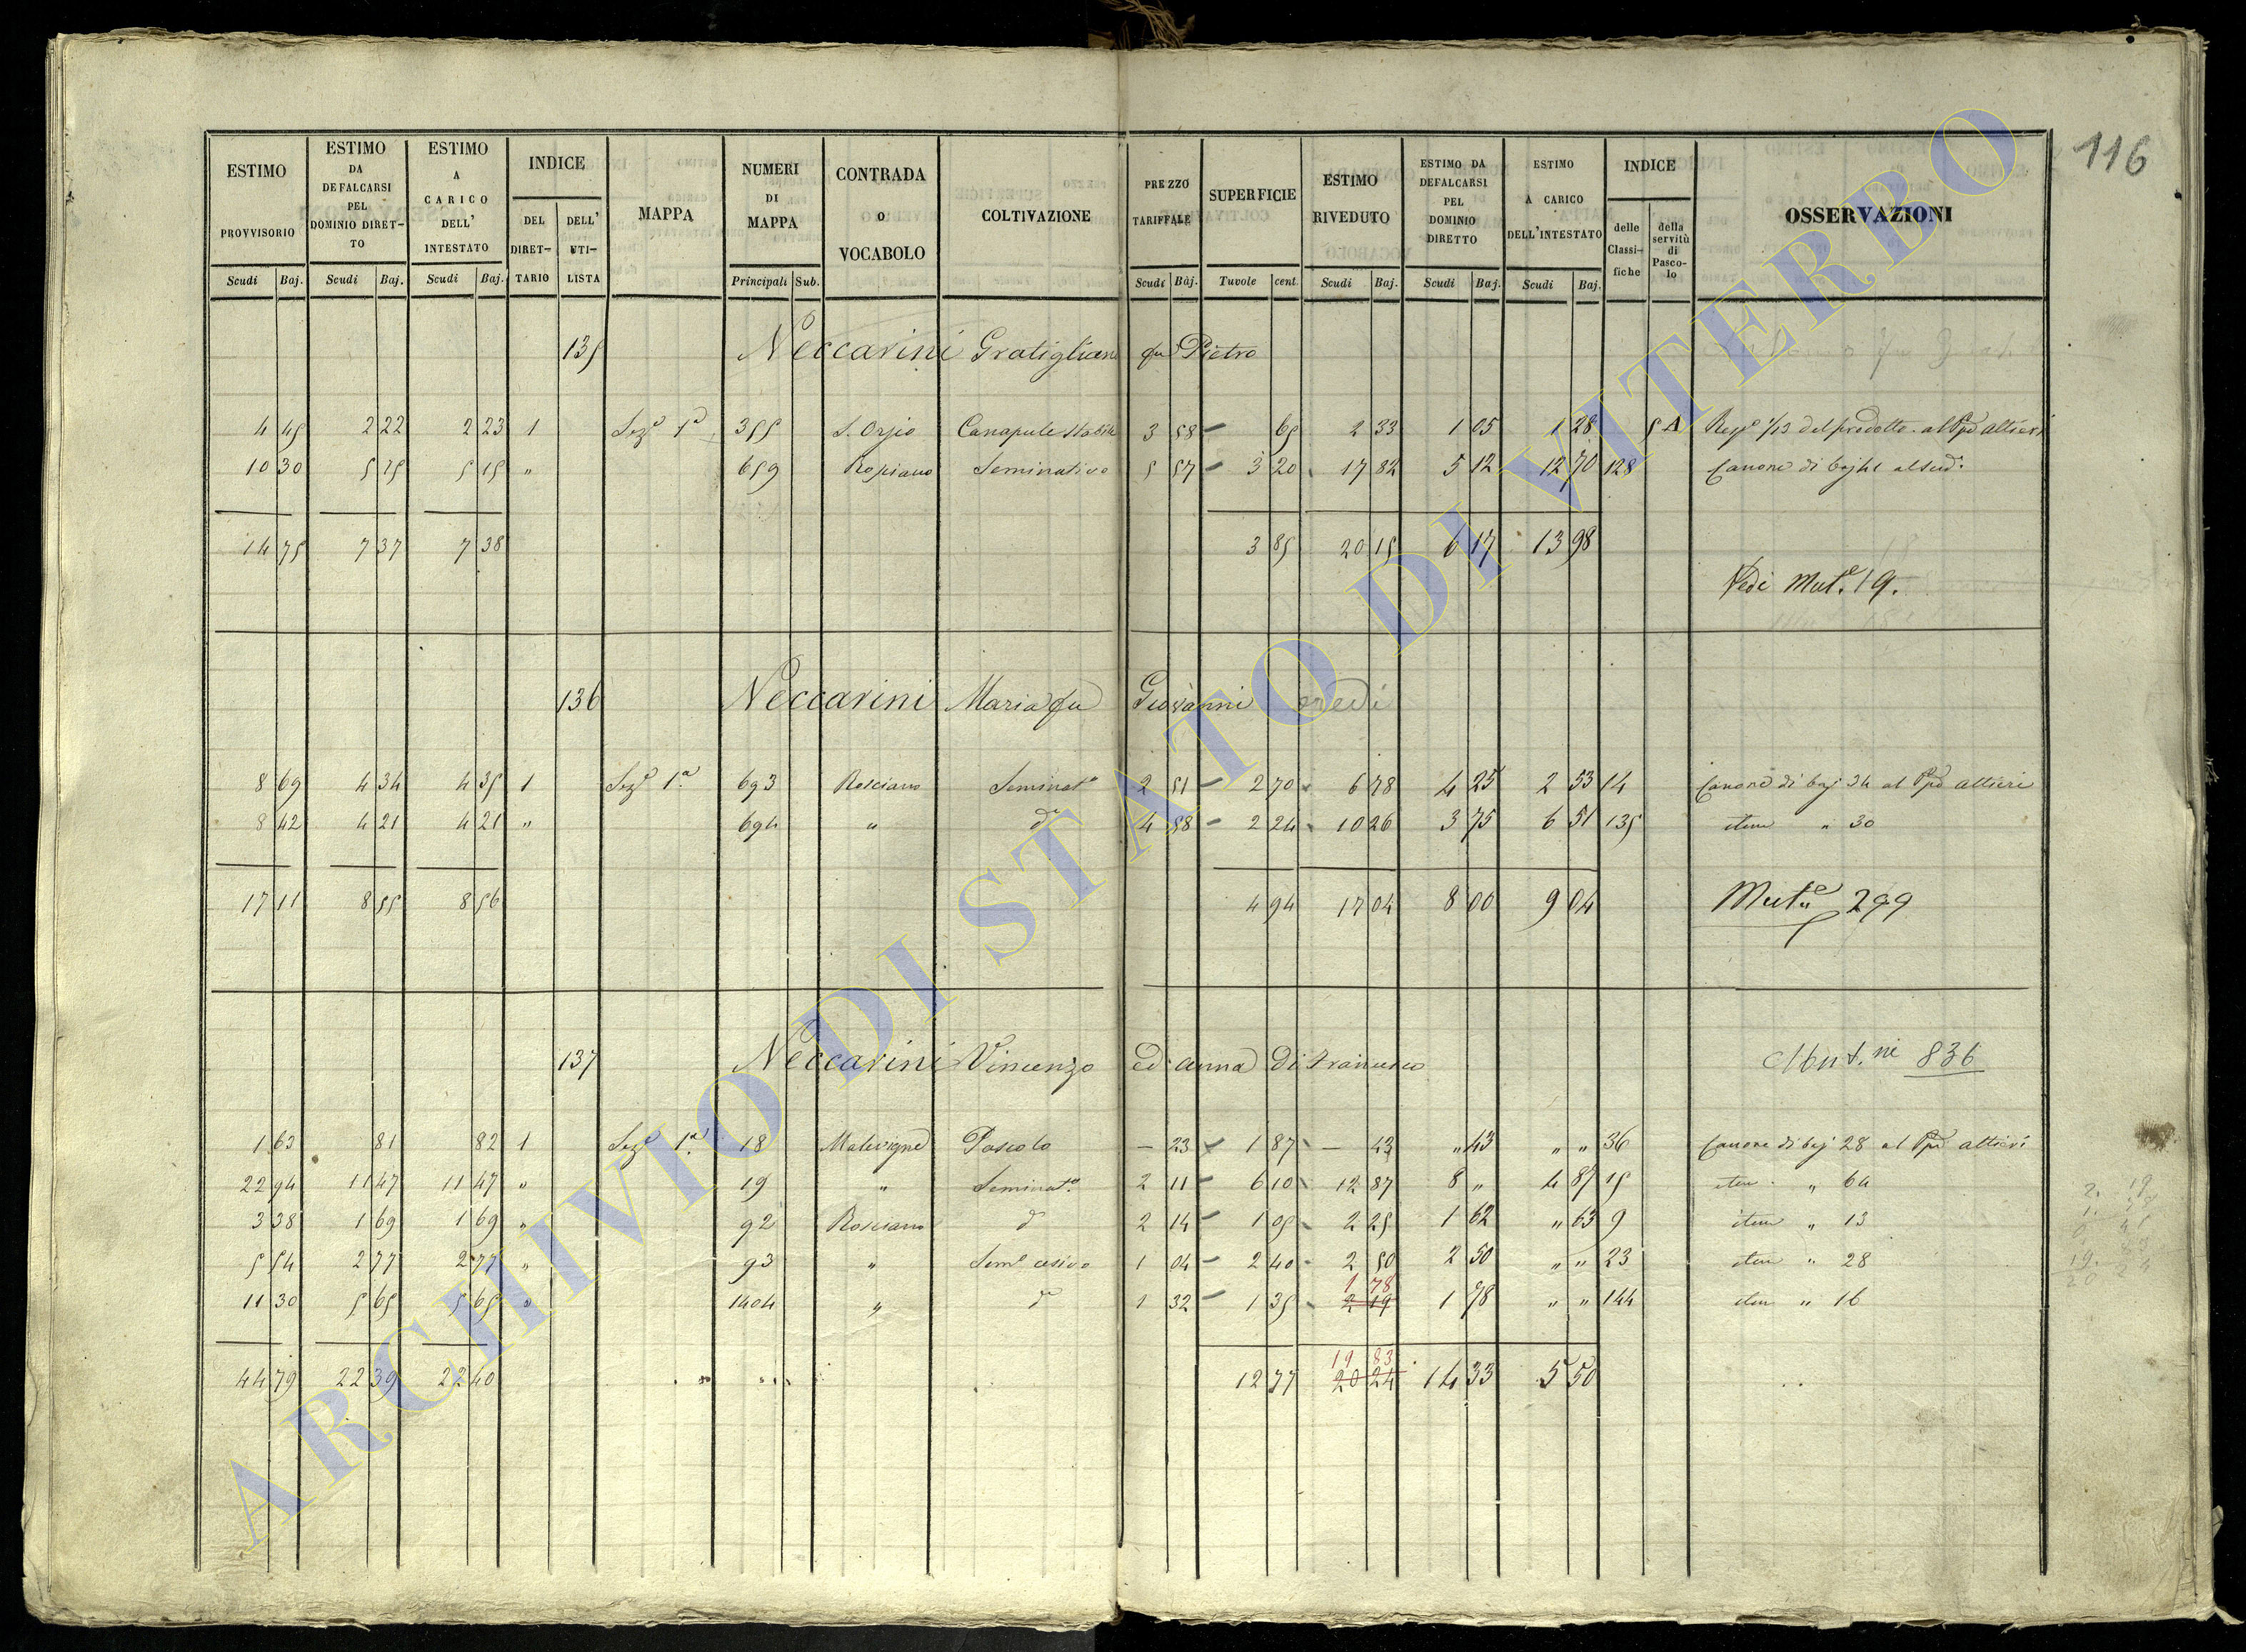 116
ESTIMO PROVVISORIO Scudi Baj.
ESTIMO DA DEFALCARSI PEL DOMINIO DIRETTO Scudi Baj.
ESTIMO A CARICO DELL' INTESTATO Scudi Baj.
INDICE DEL DIRETTARIO DELL' UTILISTA
MAPPA
NUMERI DI MAPPA Principali Sub.
CONTRADA O VOCABOLO
COLTIVAZIONE
PREZZO TARIFFALE Scudi Baj.
SUPERFICIE Tavole cent.
ESTIMO RIVEDUTO Scudi Baj.
ESTIMO DA DEFALCARSI PEL DOMINIO DIRETTO Scudi Baj.
ESTIMO A CARICO DELL'INTESTATO Scudi Baj.
INDICE delle Classifiche della servitù di Pascolo
OSSERVAZIONI
135 Neccarini Gratigliano fu Pietro
4 45 2 22 2 23 1 Sez.e 1a 355 S. Orzio Canapule 3 58 – 65 2 33 1 05 1 28 5 A del prodotto al Altieri
10 30 5 15 5 15 " 659 Rosciano Seminativo 5 57 – 3 20 17 82 5 12 12 70 128 Canone di
14 75 7 37 7 38 3 85 20 15 6 17 13 98
Vedi Mut.e 19.
136 Neccarini Maria fu Giovanni eredi
8 69 4 34 4 35 1 Sez.e 1a 693 Rosciano Seminat.o 2 51 – 2 70 6 78 4 25 2 53 14 Canone di baj 34 al Ppe Altieri
8 42 4 21 4 21 " 694 " d.o 4 58 – 2 24 10 26 3 75 6 51 135 item " 30
17 11 8 55 8 56 4 94 17 04 8 00 9 04 Mut.e 299
137 Neccarini Vincenzo ed Anna di Francesco Mut.ni 836
1 63 81 82 1 Sez.e 1a 18 Malevigne Pascolo – 23 1 87 – 43 " 43 " " 36 Canone di baj 28 al Ppe Altieri
22 94 11 47 11 47 " 19 " Seminat.o 2 11 – 6 10 12 87 8 " 4 87 15 item " 64
3 38 1 69 1 69 " 92 Rosciano d 2 14 – 1 05 2 25 1 62 " 63 9 item " 13
5 54 2 77 2 77 " 93 " Sem.o cesivo 1 04 – 2 40 2 50 2 50 " " 23 item " 28
1 78
11 30 5 65 5 65 " 1404 " d 1 32 – 1 35 2 19 1 78 " " 144 item " 16
19 83
44 79 22 39 22 40 12 77 20 24 14 33 5 50
ARCHIVIO DI STATO DI VITERBO